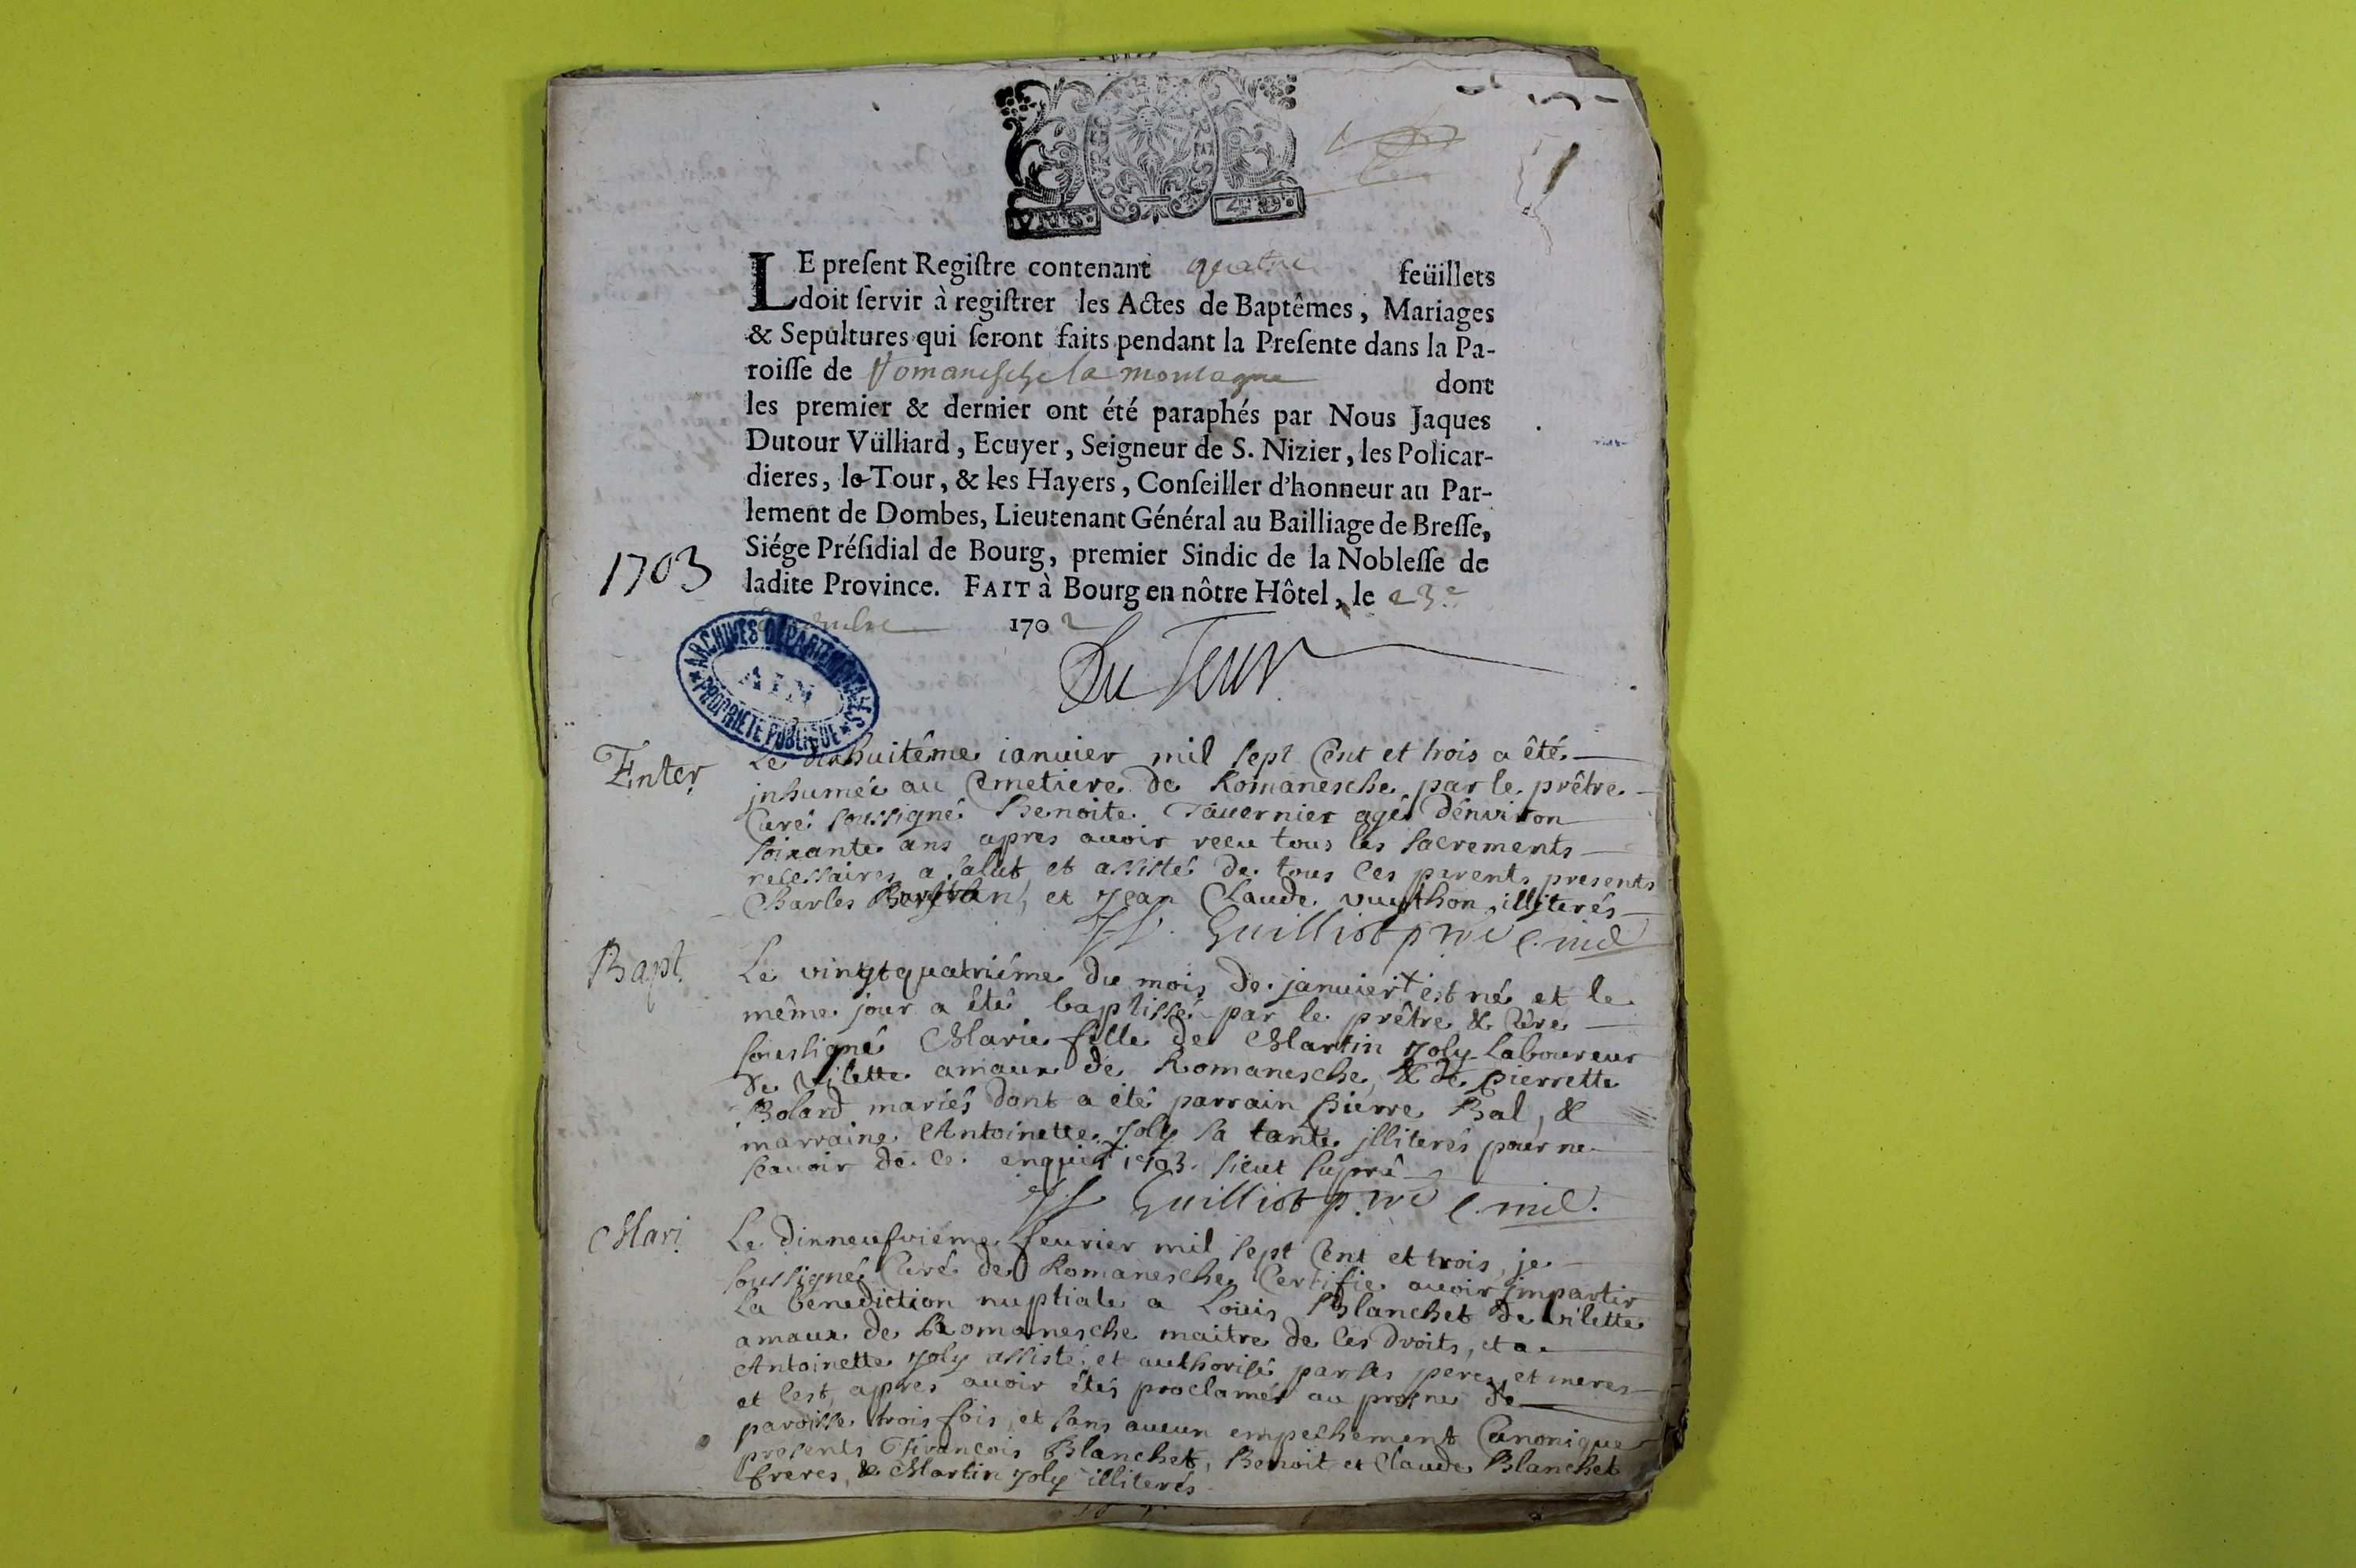 LE preſent Regiſtre contenant quatre feüillets
doit ſervir à regiſtrer les Actes de Baptêmes, Mariages
& Sepultures qui ſeront faits pendant la Preſente dans la Pa-
roiſſe de Romanesche la montagne dont
les premier & dernier ont été paraphés par Nous Jaques
Dutour Vülliard, Ecuyer, Seigneur de S. Nizier, les Policar-
dieres, le Tour, & les Hayers, Conſeiller d'honneur au Par-
lement de Dombes, Lieutenant Général au Bailliage de Breſſe,
Siége Préſidial de Bourg, premier Sindic de la Nobleſſe de
1703
ladite Province. FAIT à Bourg en nôtre Hôtel, le 23e
1702
Du Tour
ARCHIVES DÉPARTEMENTALES
AIN
PROPRIÉTÉ PUBLIQUE
Enter
Le dixhuitême ianvier mil sept Cent et trois a êté
jnhumée au Cemetiere de Romanesche par le prêtre
Curé soussigné Benoite Tavernier agée dénviron
soixante ans apres avoir recu tous les sacrements
necessaires a salut et assisté de tous ces parents presents
Charles et Jean Claude vuython illiterés
Guilliot
Bapt.
Le vingtquatriéme du mois de janvier est né et le
même jour a êté baptissé par le prêtre & Cûre
soussigné Marie fille de Martin Joly Laboureur
de vilette amaux de Romanesche, & de pierrette
Bolard mariés dont a été parrain pierre Bal, &
marraine Antoinette Joly sa tante jlliterés pour ne
scavoir de ce enquis 1703 sicut suprà
Guilliot
Mari
Le dinneufvieme feurier mil sept Cent et trois, je
soussigné Curé de Romanesche Certifie avoir jmpartir
La benediction nuptiale a Louis Blanchet de vilette
amaux de Romanesche maitre de ces droits, et a
Antoinette Joly assisté et authorisé par ses peres et meres
et cest apres avoir êtés proclamés au prosne de
paroisse trois fois, et sans aucun empechement Canonique
presents François Blanchet, Benoit et Claude Blanchet
freres, & Martin Joly illiterés